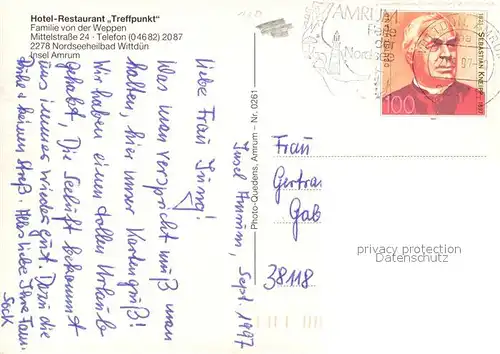 Hotel-Restaurant „Treffpunkt"
Familie von der Weppen
Mittelstraße 24 · Telefon (0 46 82) 20 87
2278 Nordseeheilbad Wittdün
Insel Amrum
AMRUM
SEBASTIAN KNEIPP
100
Insel Amrum, Sept. 1997
Liebe Frau Jung!
Was man verspricht muß man
halten, hier unser Kartengruß!
Wir haben einen tollen Urlaub
gehabt, Die Seeluft bekommt
uns immer wieder gut. Dazu die
Ruhe + keinen Streß. Alles Liebe Ihre Fam.
Sock
Photo-Quedens, Amrum – Nr. 0261
Frau
Gertra
Gab
38118
privacy protection
Datenschutz